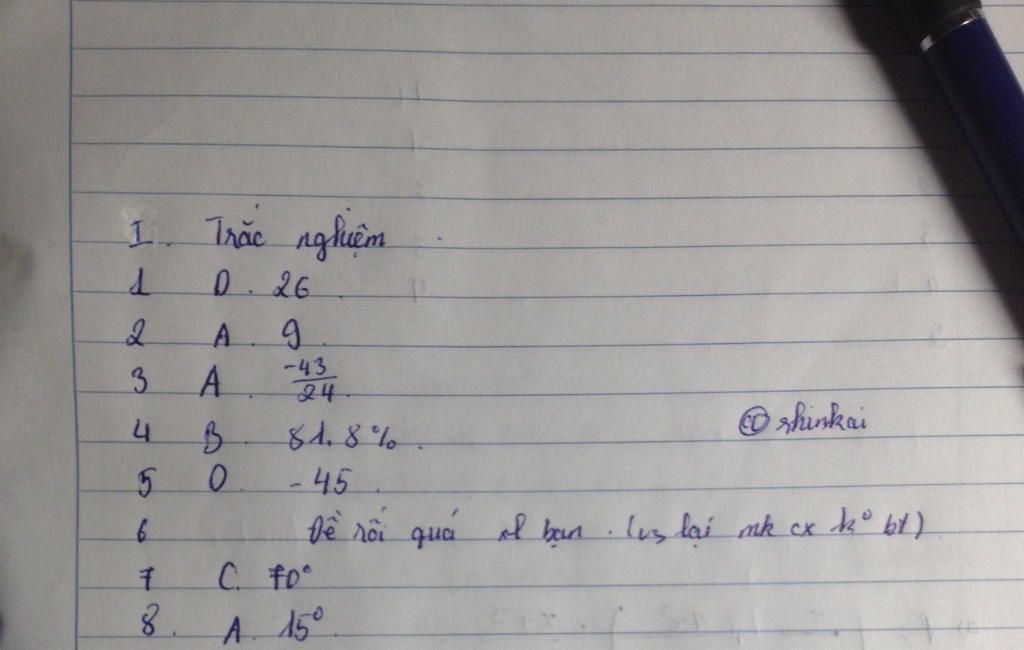 I. Trắc nghiệm
1 D. 26
2 A. 9
3 A. -43/24.
4 B. 81.8%.
@ shinkai
5 D. -45.
6 Đề rối quá xl bạn. (vs lại mk cx k° bt)
7 C. 70°
8. A. 15°.